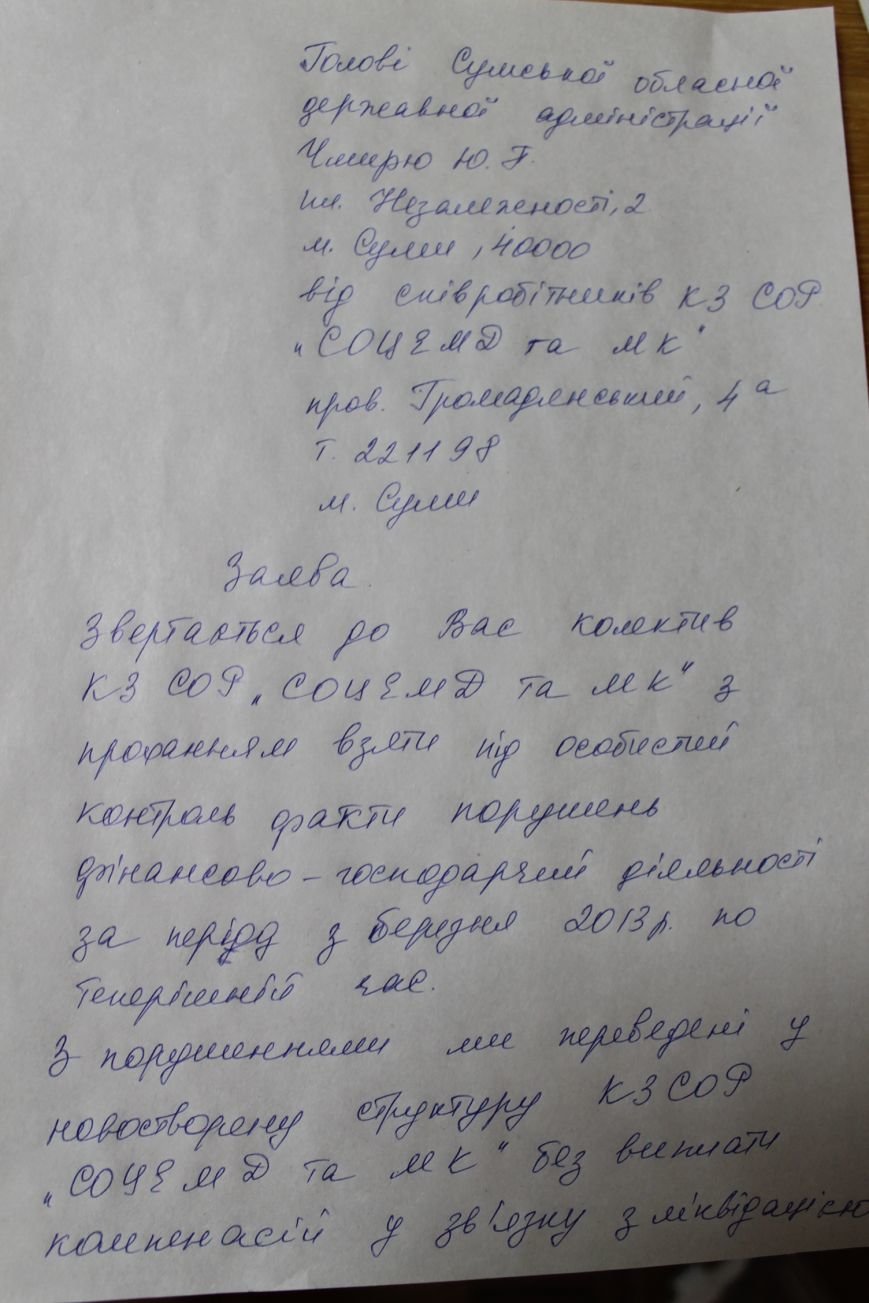 Голові Сумської обласної
державної адміністрації
Чмирю Ю. П.
пл. Незалежності, 2
м. Суми, 40000
від співробітників КЗ СОР
"СОЦЕМД та МК"
пров. Громадянський, 4а
т. 221198
м. Суми
Заява
Звертається до Вас колектив
КЗ СОР "СОЦЕМД та МК" з
проханням взяти під особистий
контроль факти порушень
фінансово-господарчий діяльності
за період з березня 2013р. по
теперішній час.
З порушеннями ми переведені у
новостворену структуру КЗ СОР
"СОЦЕМД та МК" без виплати
компенасій у зв'язку з ліквідацією